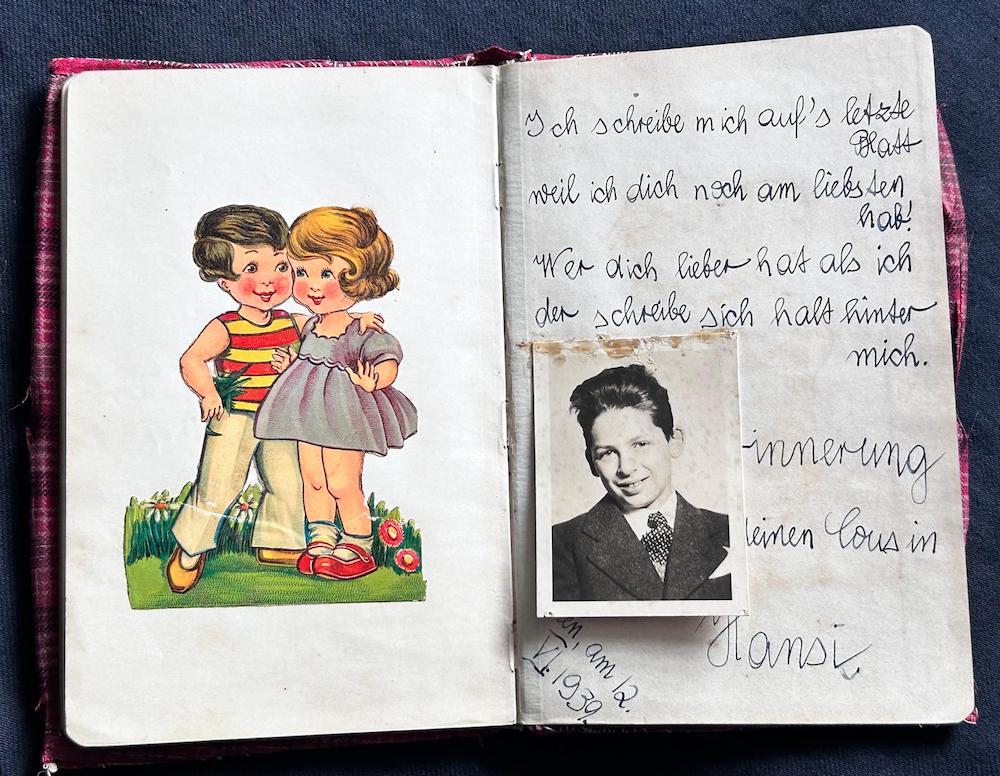 Ich schreibe mich auf's letzte
Blatt
weil ich dich noch am liebsten
hab!
Wer dich lieber hat als ich
der schreibe sich halt hinter
mich.
innerung
einen Cousin
Hansi.
en, am 12.
VI. 1939.